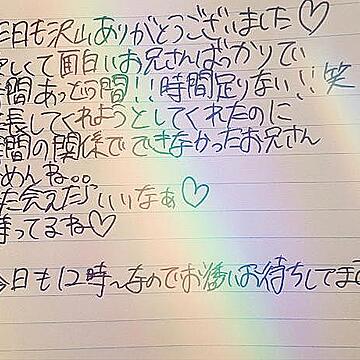 昨日も沢山ありがとうございました♡
楽しくて面白いお兄さんばっかりでい
時間あっとゆう間!!時間足りない!!笑
延長してくれようとしてくれたのに
時間の関係でできなかったお兄さん
ごめんね。。
また会えたらいいなぁ♡
待ってるね♡
今日も12時〜なのでお誘いお待ちしてます